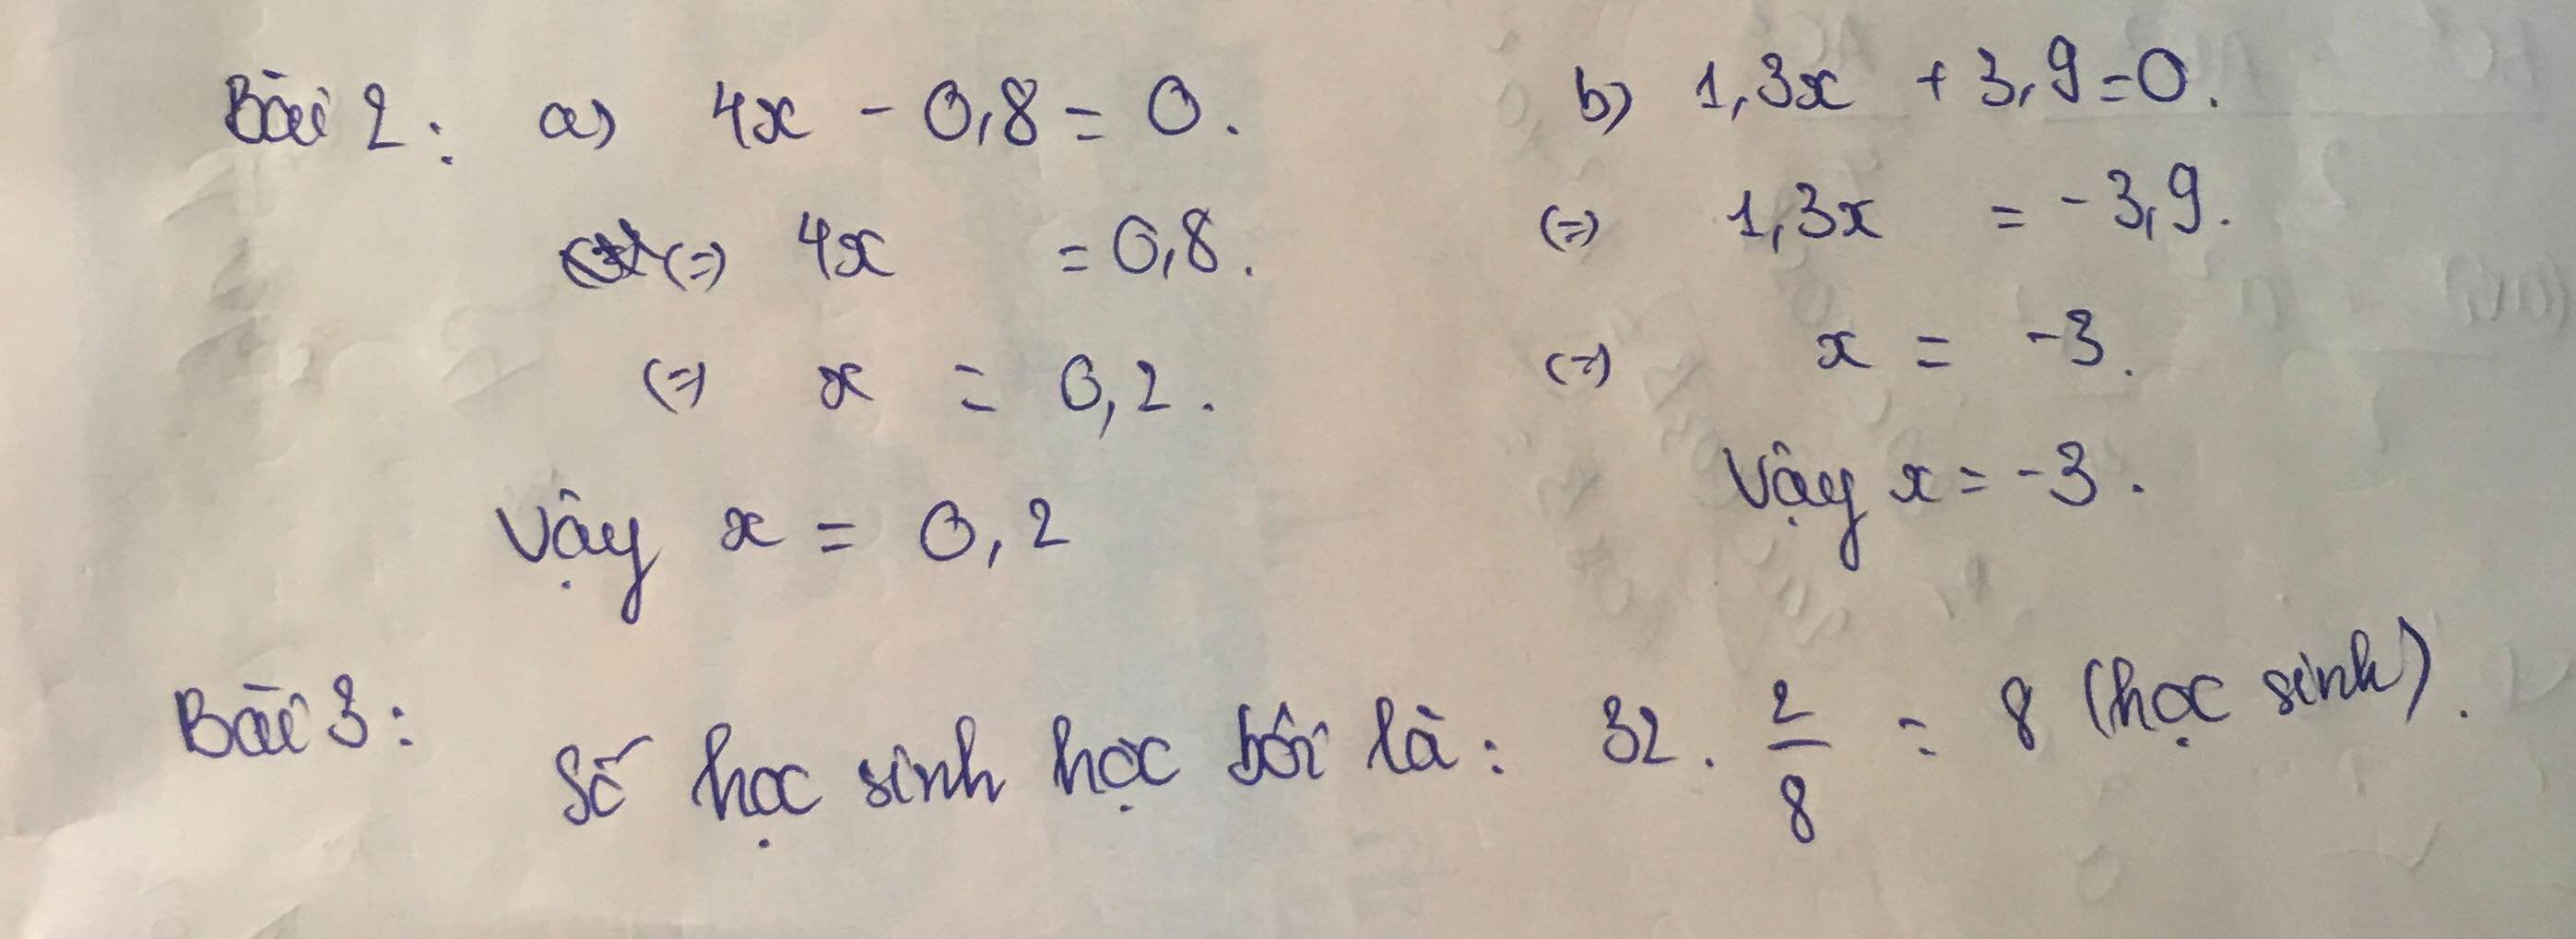 Bài 2: a) 4x - 0,8 = 0.
(=) 4x = 0,8.
(=) x = 0,2.
Vậy x = 0,2
b) 1,3x + 3,9 = 0.
(=) 1,3x = -3,9.
(=) x = -3.
Vậy x = -3.
Bài 3: Số học sinh học bơi là: 32 . 2/8 = 8 (học sinh).